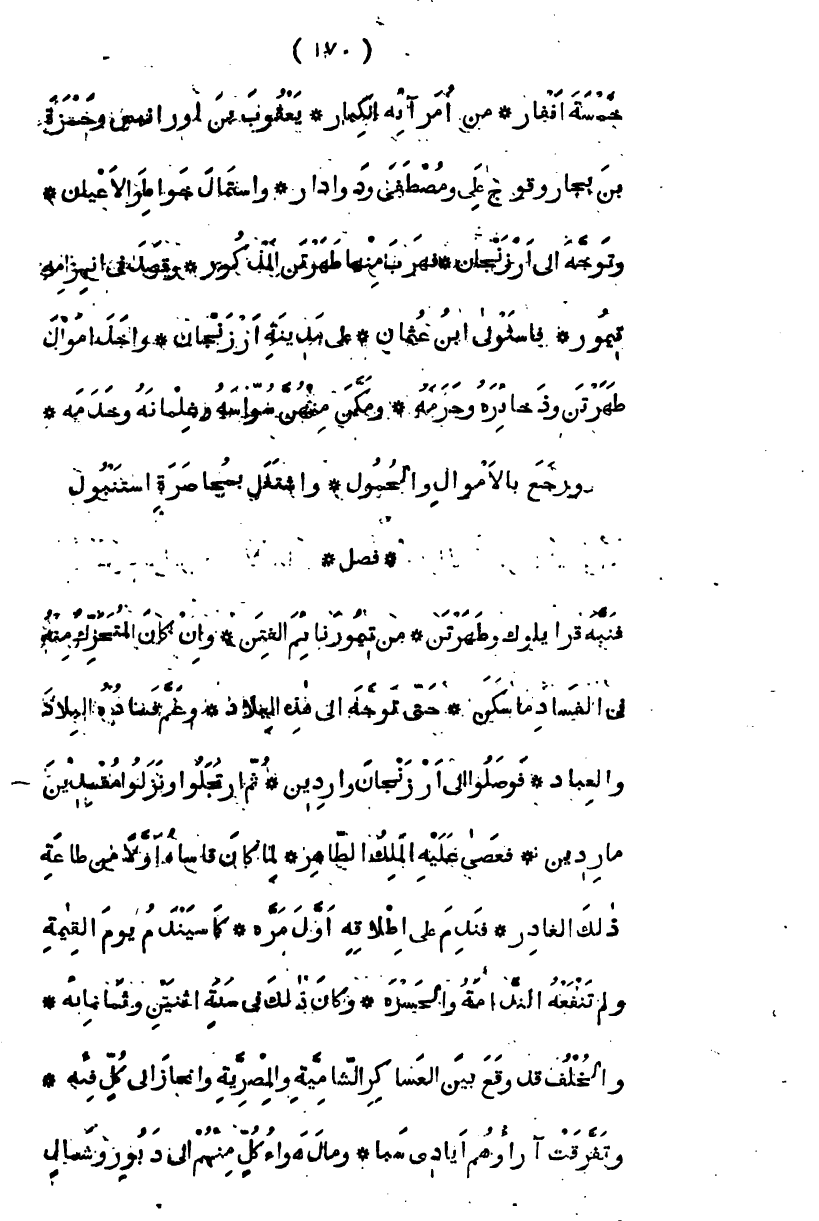 ( ١٧٠ )
خَمْسَةَ اَنْفار * من اُمَرآئِه الكِبار * يَعْقُوبَ بنَ اورانمس وَحَمْزَةَ
بنَ بجار وقوج عَلِى ومُصْطَفَى وَدَوادار * واستَمالَ خَواطِرَ الاَعْيان *
وتَوَجَّهَ الى اَرْزَنْجان * فهَرَبَ مِنْها طَهَرْتَن المَذْكُور * وقَصَدَ فى انهِزامِه
تِيمُور * فاسْتَوْلىٰ ابنُ عُثْمان * على مَدِينَةِ اَرْزَنْجان * واخَذَ امْوالَ
طَهَرْتَن وذَخائِرَهُ وحَرَمَهُ * ومَكَّنَ مِنْهُنَّ سُوّاسَهُ وغِلْمانَهُ وخَدَمَه *
ورجَعَ بالاَمْوالِ والحُمُول * واشتَغَل بمُحاصَرَةِ استَنْبُولَ
* فصل *
فنَبَّهَ قرا يلوك وطَهَرْتَن * من تِيمُورَ نائِمَ الفِتَن * وإنْ كانَ المُتَحَرِّكُ مِنْهُ
فى الفَسادِ ما سَكَن * حَتّى تَوجَّهَ الى هٰذِهِ البِلاد * وعَمَّ فَسادُهُ البِلادَ
والعِباد * فَوصَلُوا الى اَرْزَنْجانَ وارِدِين * ثُمّ ارتَحَلُوا ونَزَلُوا مُفْسِدِينَ
مارِدِين * فعَصىٰ عَلَيْهِ المَلِكُ الظّاهِر * لِما كانَ قاساهُ اَوَّلًا من طاعَةِ
ذٰلكَ الغادِر * فنَدِمَ على اِطْلاقِهِ اَوَّلَ مَرَّه * كَما سَيَنْدَمُ يَومَ القِيٰمةِ
ولم تَنْفَعْهُ النَّدامَةُ والحَسْرَه * وكانَ ذٰلكَ فى سَنَةِ اثنَيْنِ وثمانمائه *
والخُلْفُ قد وقَعَ بَينَ العَساكِرِ الشّامِيَّةِ والمِصْرِيَّةِ وانحازَ الى كُلٍّ فِئَه *
وتَفَرَّقَتْ آراؤُهُم اَيادِى سَبا * ومالَ هَواءُ كُلٍّ مِنْهُمْ الى دَبُورٍ وشَمالٍ